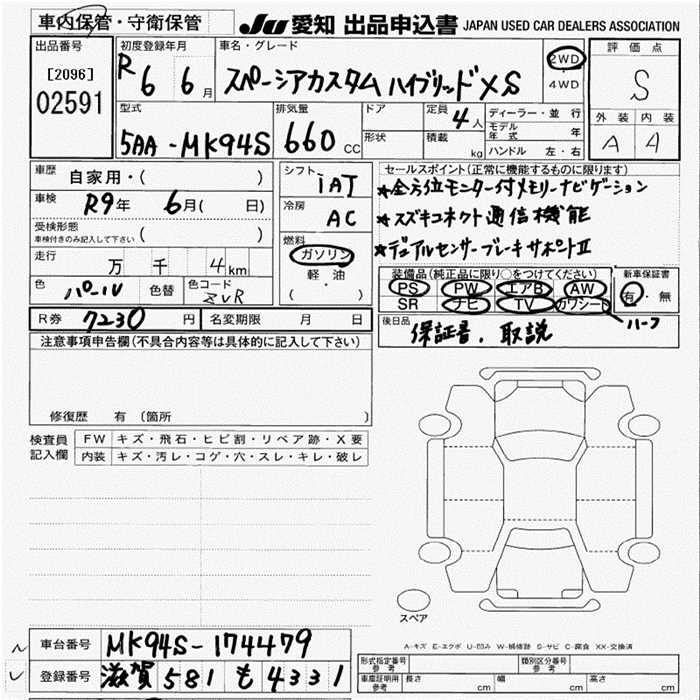 車内保管・守衛保管 JU 愛知 出品申込書 JAPAN USED CAR DEALERS ASSOCIATION
出品番号 初度登録年月 車名・グレード 評価点
[2096] R6 6月 スペーシアカスタム ハイブリッドXS 2WD・4WD S
02591 型式 排気量 ドア 定員 4人 ディーラー・並行 外装 内装
5AA-MK94S 660CC 形状 積載 kg モデル年式 年 A A
ハンドル 左・右
車歴 自家用・( ) シフト iAT セールスポイント(正常に機能するものに限ります)
車検 R9年 6月( 日) 冷房 AC ★全方位モニター付メモリーナビゲーション
受検形態 車検付きのみ記入して下さい ( ) 燃料 ★スズキコネクト通信機能
走行 万 千 4km ガソリン ★デュアルセンサーブレーキサポートⅡ
色 パール 色替 色コード ZVR 軽油 ( ・ ) 装備品(純正品に限り○をつけてください) 新車保証書
PS PW エアB AW 有・無
SR ナビ TV カワシート ハーフ
R券 7230円 名変期限 月 日 後日品 保証書、取説
注意事項申告欄(不具合内容等は具体的に記入して下さい)
修復歴 有 (箇所 )
検査員記入欄 FW キズ・飛石・ヒビ割・リペア跡・X要
内装 キズ・汚レ・コゲ・穴・スレ・キレ・破レ
スペア
車台番号 MK94S-174479 A-キズ E-エクボ U-凹み W-補修跡 S-サビ C-腐食 XX-交換済
登録番号 滋賀 581 も 4331 形式指定番号 参考 類別区分番号 参考
車庫証明用 参考 長さ cm 幅 cm 高さ cm